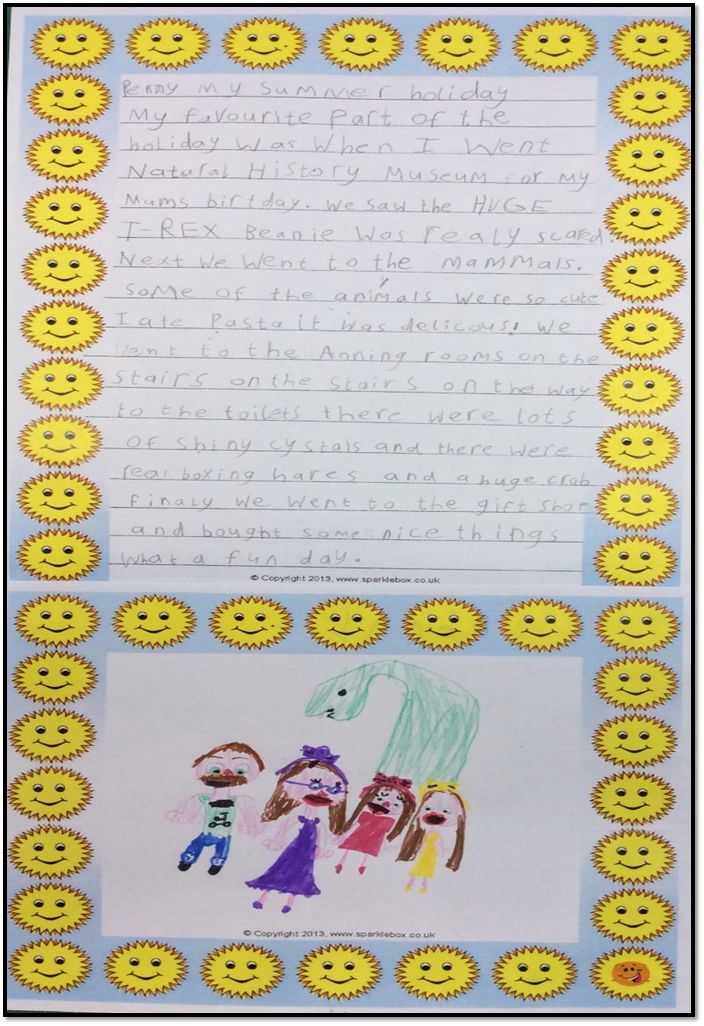 Penny My Summer holiday
My favourite Part of the
holiday was when I went
Natural History Museum for my
Mums birtday. we saw the HUGE
T-REX Beanie was realy scared.
Next we went to the mammals.
some of the animals were so cute
I ate Pasta it was delicous! we
went to the Anning rooms on the
stairs on the stairs on the way
to the toilets there were lots
of shiny cystals and there were
real boxing hares and a huge crab
finaly we went to the gift shop
and bought some nice things
what a fun day.
© Copyright 2013, www.sparklebox.co.uk
© Copyright 2013, www.sparklebox.co.uk